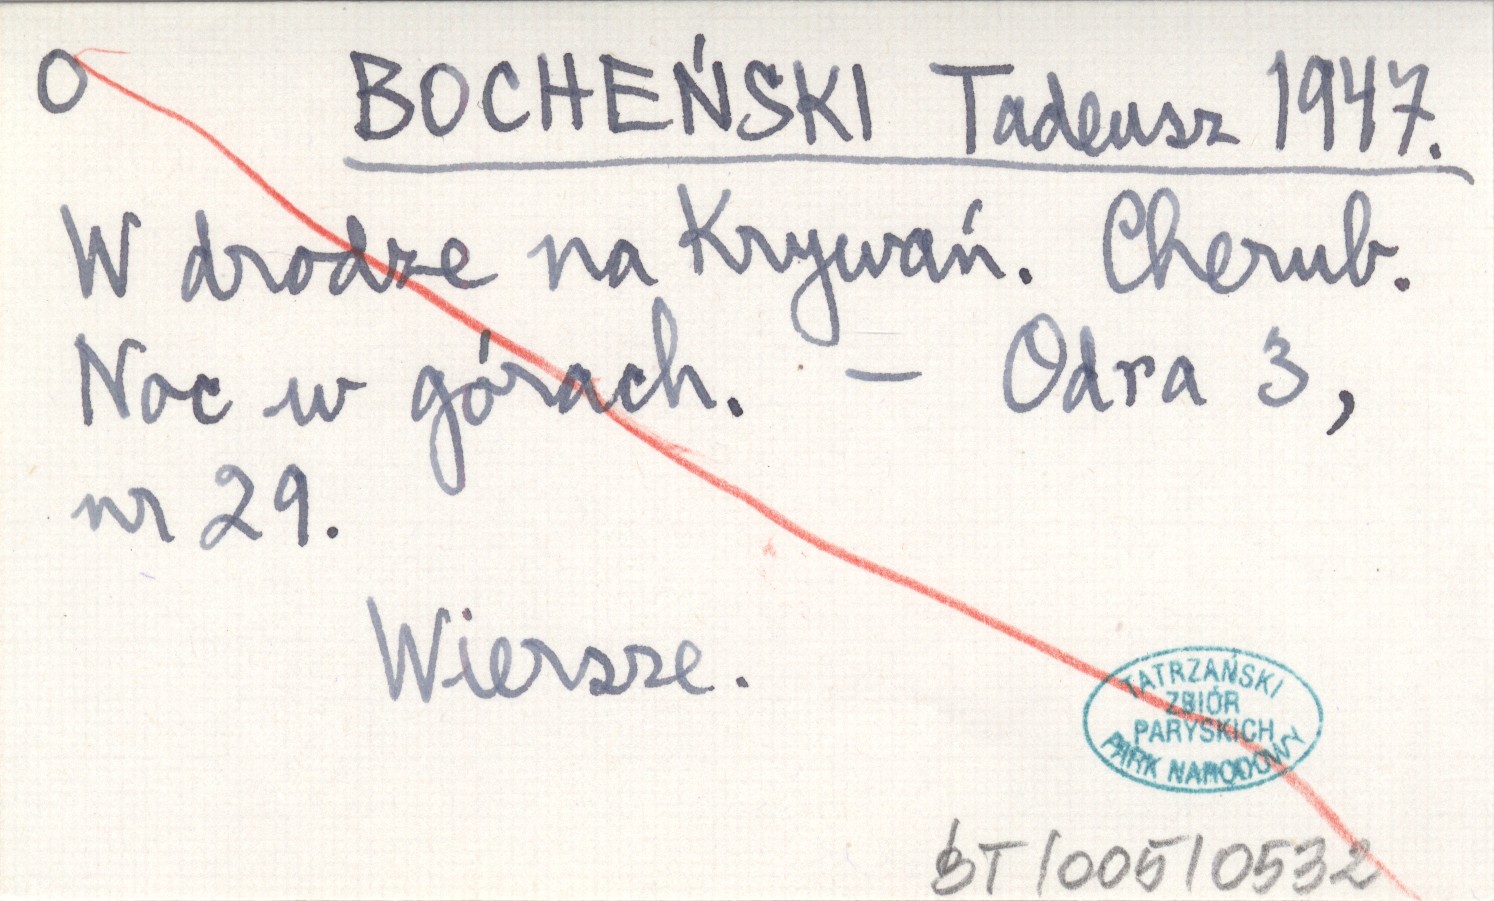 O BOCHEŃSKI Tadeusz 1947.
W drodze na Krywań. Cherub.
Noc w górach. — Odra 3,
nr 29.
Wiersze.
TATRZAŃSKI
ZBIÓR
PARYSKICH
PARK NARODOWY
BT/005/0532